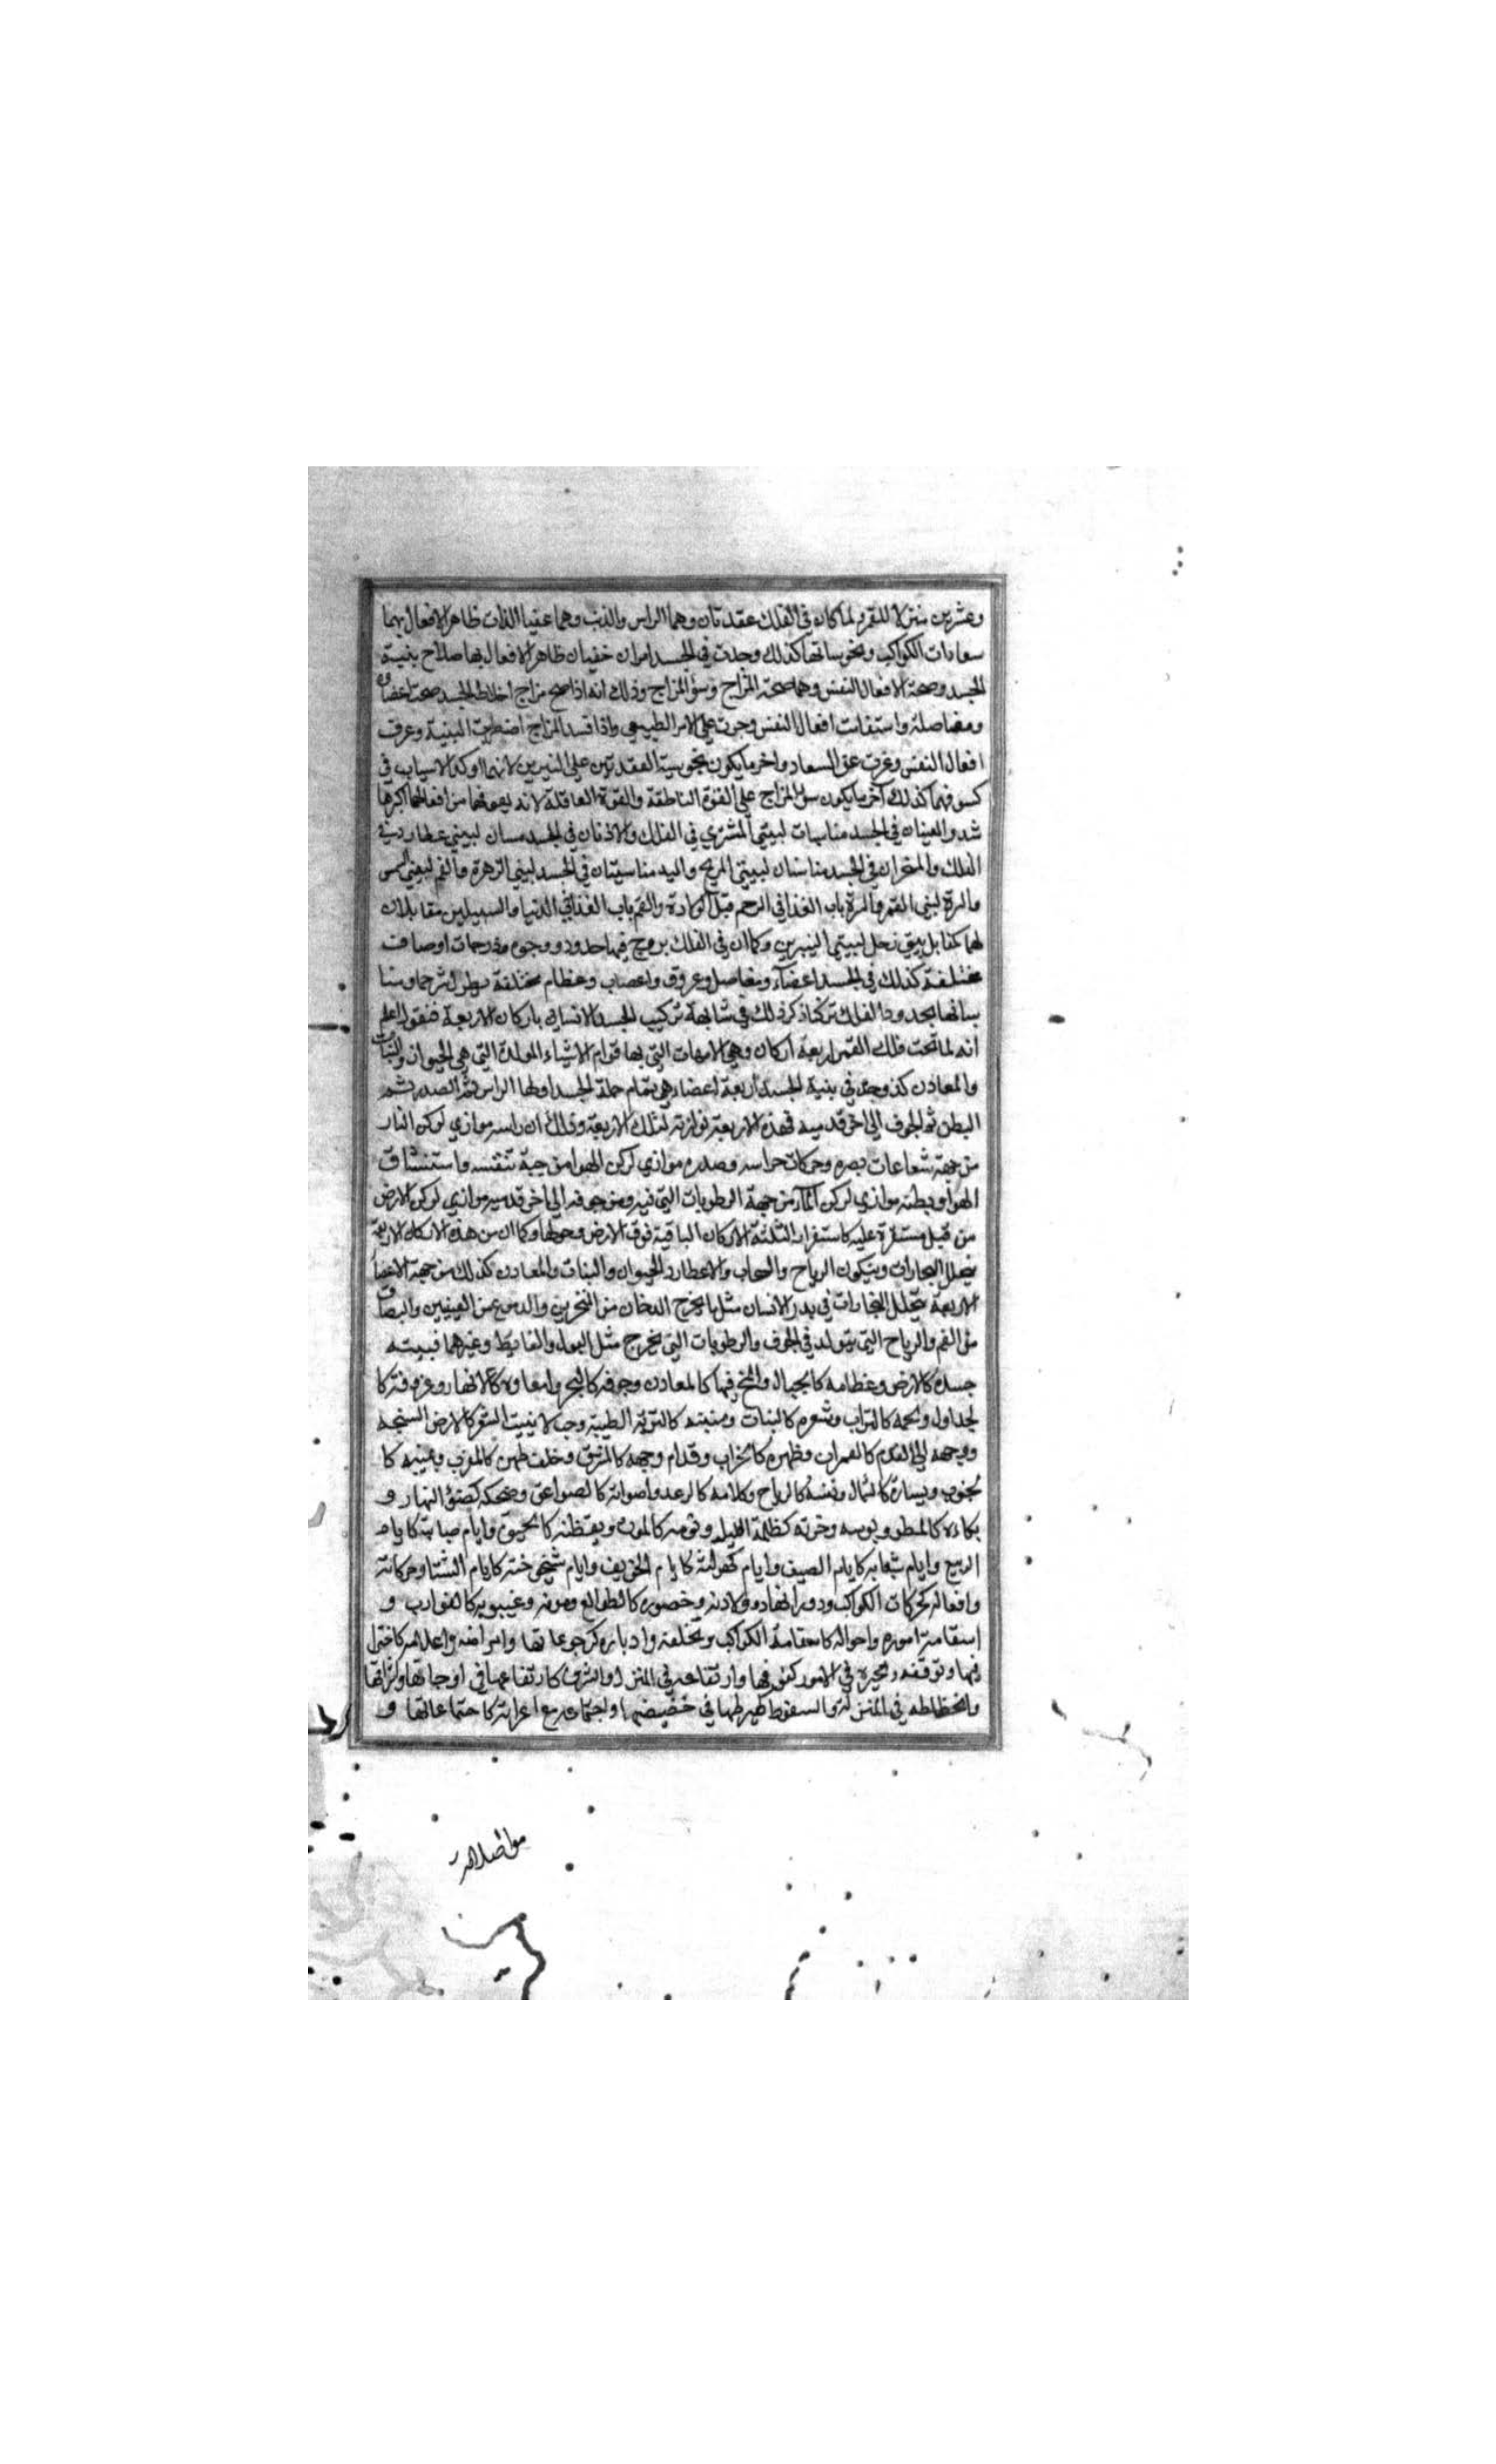 وعشرين منزلا للقمر ولما كان في الفلك عقدتان وهما الراس والذنب وهما خفيا الذات ظاهرا الافعال بهما
سعادات الكواكب ونحوساتها كذلك وجدت في الجسد امران خفيان ظاهر الافعال بها صلاح بنية
الجسد وصحة الافعال النفس وهما صحة المزاج وسؤ المزاج وذلك انه اذا صح مزاج اخلاط الجسد صحت اعضاؤه
ومفاصله واستقامت افعال النفس وجرت علي الامر الطبيعي واذا فسد المزاج اضطربت البنية وعرف
افعال النفس وعرت عن السعاد واخر ما يكون نحوسية العقدتين علي النيرين لانهما اوكد الاسباب في
كسوفهما كذلك آخر ما يكون سؤ المزاج علي القوة الناطقة والقوة العاقلة لانه يعوقهما من افعالهما اكبرها
شد والعينان في الجسد مناسبات لبيتي المشتري في الفلك والاذنان في الجسد لبيتي عطارد في
الفلك والمنخران في الجسد مناسبان لبيتي المريخ واليد مناسبتان في الجسد لبيتي الزهرة والفم لبيتي الشمس
والسرة لبيتي القمر والسرة باب الغذا في الرحم قبل الولادة والفم باب الغذا في الدنيا والسبيلين مقابلان
لهما كمقابل بيتي زحل لبيتي النيرين وكما ان في الفلك بروج فيها حدود ووجوه ودرجات اوصافت
مختلفة كذلك في الجسد اعضآء ومفاصل وعروق واعصاب وعظام مختلفة يطول شرحها ومنا
سباتها بحدود الفلك تركنا ذكر ذلك في مشابهة تركيب الجسد الانساني باركان الاربعة فنقول اعلم
انه لما تحت فلك القمر اربعة اركان وهي الامهات التي بها قوام الاشياء المولدة التي هي الحيوان والنبات
والمعادن كذ وجد في بنية الجسد اربعة اعضاء هي تمام جملة الجسد اولها الراس ثم الصدر ثم
البطن ثم الجوف الي اخر قدميه فهذه الاربعة توازنة لتلك الاربعة وذلك ان راسه موازي لركن النار
من جهة شعاعات بصره وحركات حواسه وصدره موازي لركن الهوا من جهة تنفسه واستنشاق
الهوا وبطنه موازي لركن المآء من جهة الرطوبات التي فيه ومن جوفه الي اخر قدميه موازي لركن الارض
من قبل مستقرة عليه كاستقرار الثلثة الاركان الباقية فوق الارض وحولها وكما ان من هذه الاركان الاربعة
يتحلل البخارات ويتكون الرياح والسحاب والامطار والحيوان والنبات والمعادن كذلك من جهة الاعضا
الاربعة يتحلل البخارات في بدن الانسان مثل ما يخرج الدخان من المنخرين والدمع من العينين والبصاق
من الفم والرياح التي يتولد في الجوف والرطوبات التي يخرج مثل البول والغايط وغيرهما فبيته
جسده كالارض وعظامه كالجبال والمخ فيها كالمعادن وجوفه كالبحر وامعاوه كالانهار وعروقه كا
لجداول ولحمه كالتراب وشعره كالنبات ومنبته كالتربة الطيبة وحيث لا ينبت الشعر كالارض السبخة
ووجهه الي القدم كالعمران وظهره كالخراب وقدام وجهه كالمشرق وخلف ظهره كالمغرب ويمينه كا
لجنوب ويساره كالشمال وتنفسه كالرياح وكلامه كالرعد واصواته كالصواعق وضحكه كضؤ النهار و
بكاءه كالمطر وبوسه وحزنه كظلمة الليل ونومه كالموت ويقظته كالحيوة وايام صباه كايام
الربيع وايام شبابه كايام الصيف وايام كهولته كايام الخريف وايام شيخوخته كايام الشتا وحركاته
وافعاله كحركات الكواكب ودورانها وولادته وحضوره كالطوالع وموته وغيبوبته كالغوارب و
استقامة اموره واحواله كاستقامة الكواكب وتخلفه وادباره كرجوعاتها وامراضه واعلاله كاحترا
قها وتوقفه وتحيره في الامور كوقوفها وارتفاعه في المنزل والشرف كارتفاعها في اوجاتها واشرافها
وانحطاطه في المنزلة والسقوط كهبوطها في حضيضها واجتماعه مع امراته كاجتماعاتها و